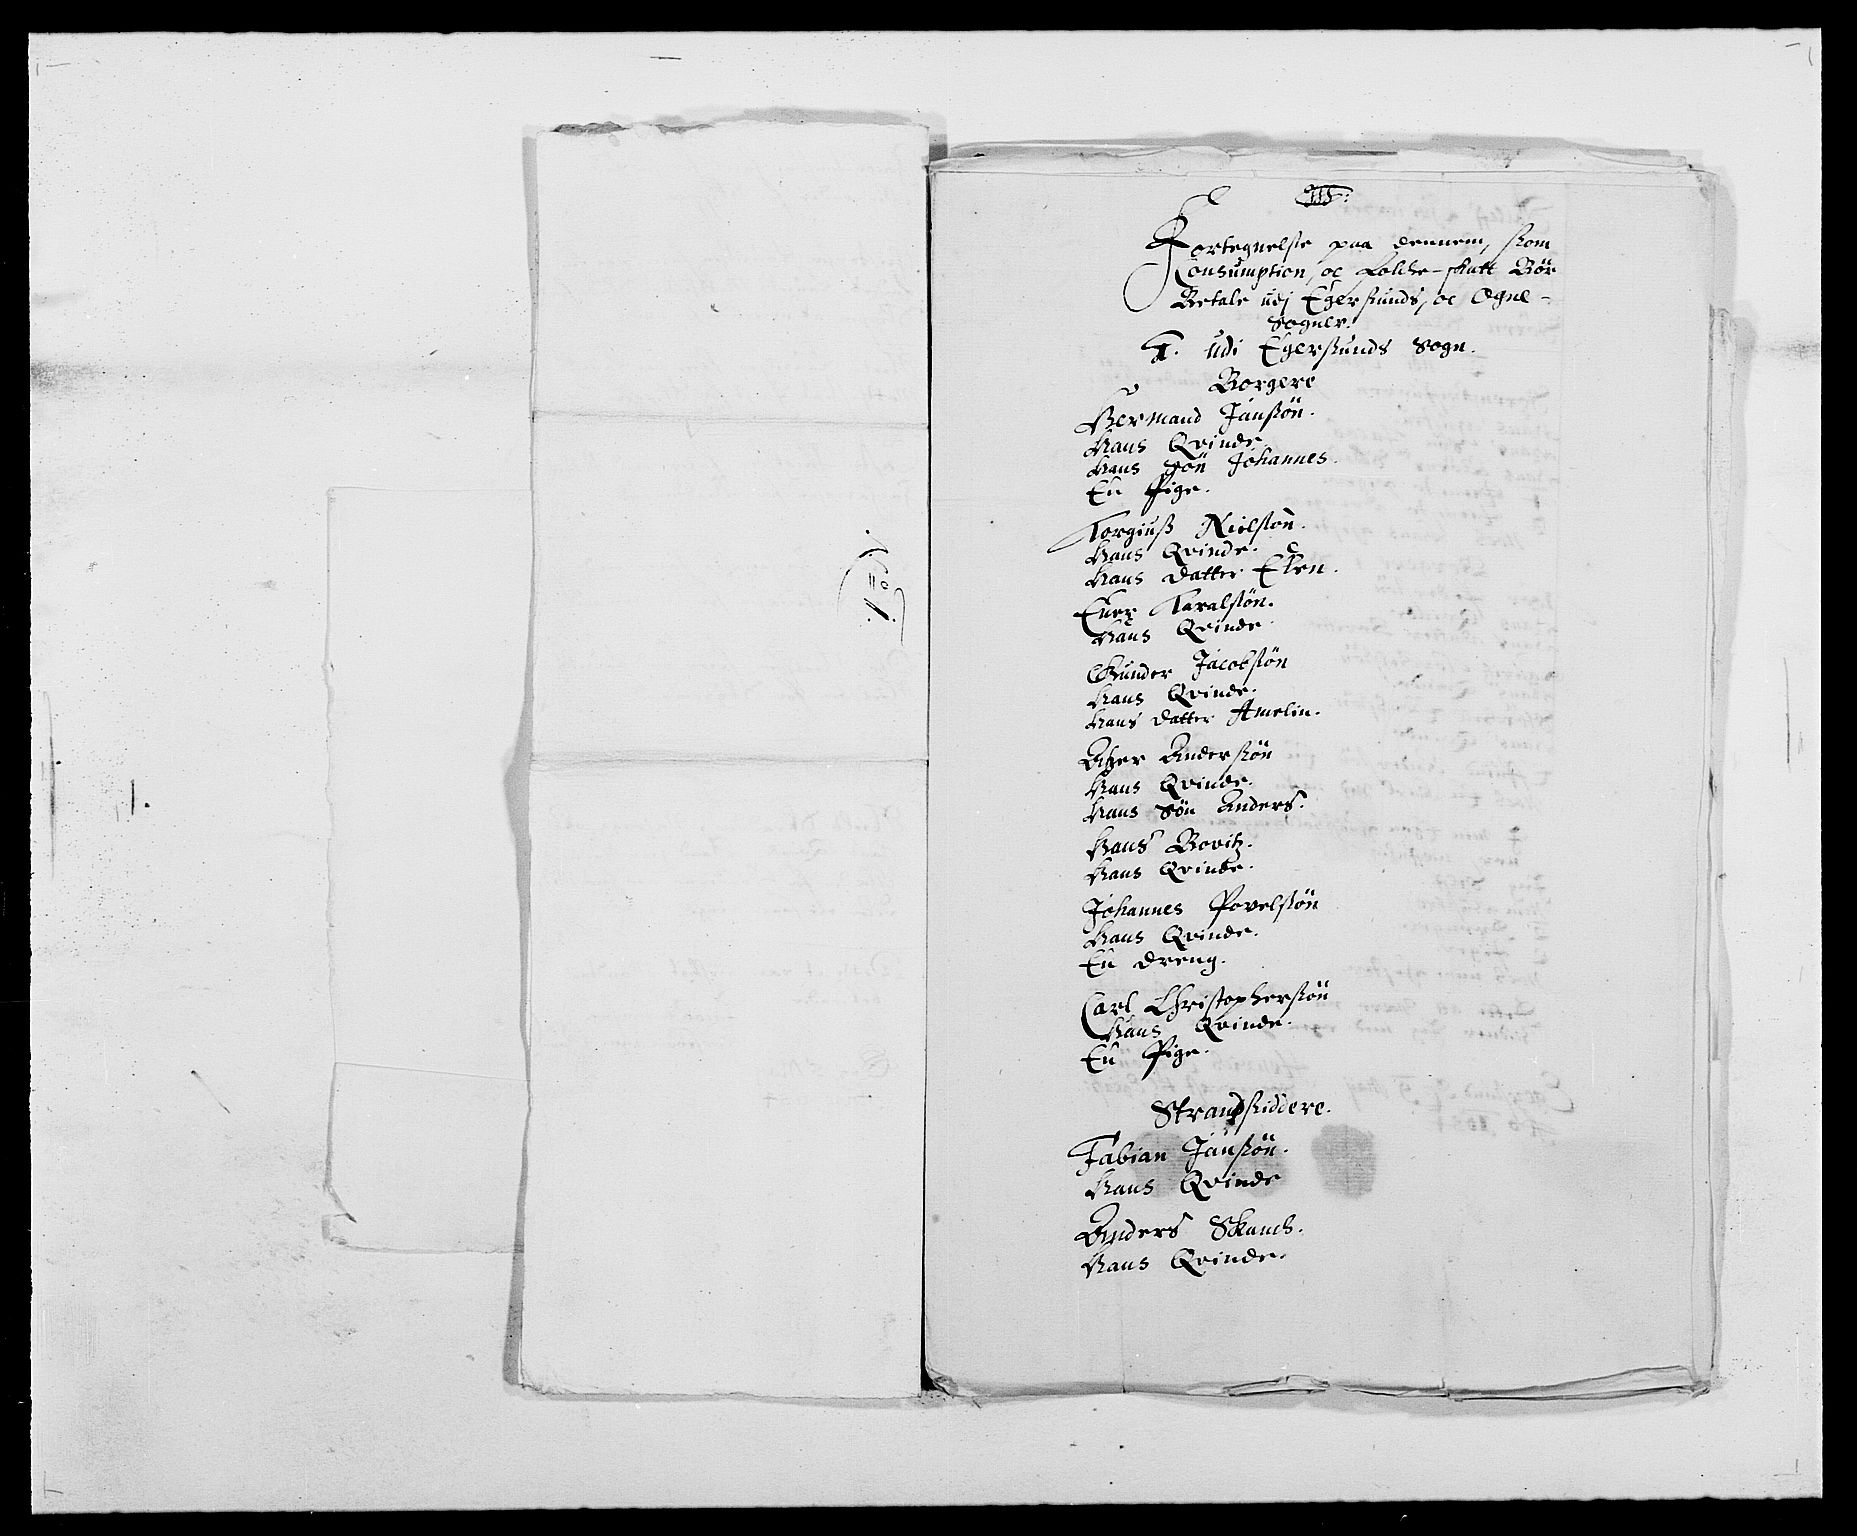 Fortegnelse paa dennem, som
Consumption, oc Folche-skatt Bör
Betale udj Egersunds, oc Ogne-
Sogner.
1. Udi Egersunds Sogn.
Borgere
Hermand Janssön.
Hans Qvinde.
Hans Sön Johannes.
En Pige.
Torgiuss Nielssön.
Hans Qvinde.
Hans Datter Elen.
Hans Qvinde.
Gunder Jacobssön
Hans Qvinde.
Hans Datter Amelin.
Asser Anderssön
Hans Qvinde.
Hans Sön Anders.
Hans Bovitz.
Hans Qvinde.
Johannes Povelssön
Hans Qvinde.
En Dreng.
Carl Christopherssön
Hans Qvinde.
En Pige.
Strandsiddere.
Fabian Janssön.
Hans Qvinde
Anders
Hans Qvinde.